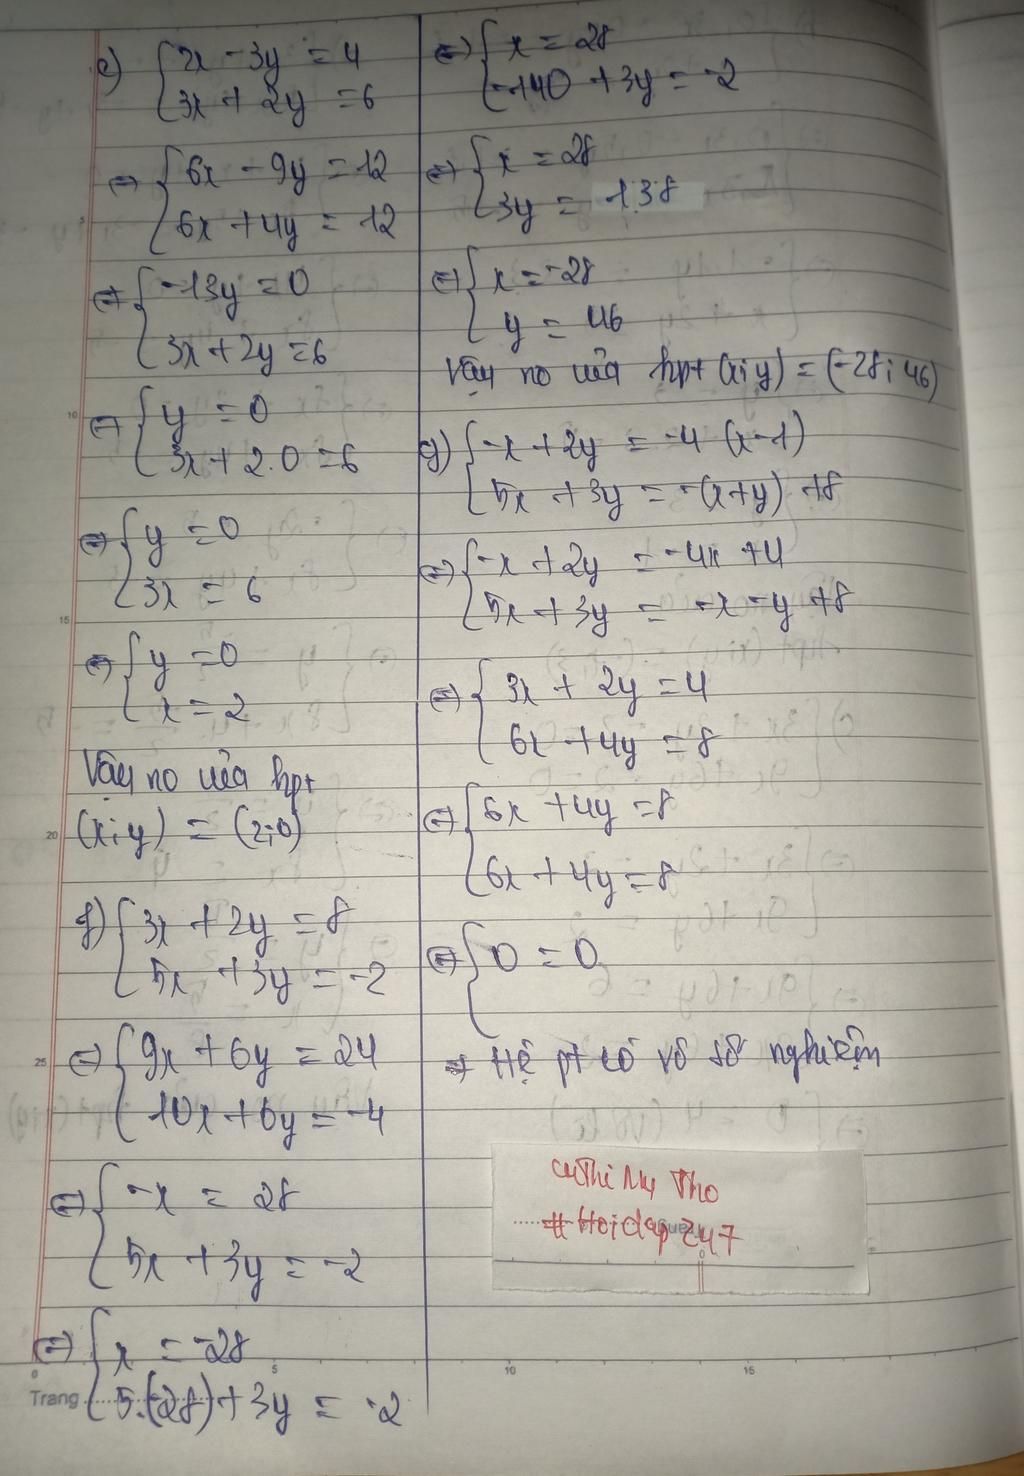 e) { 2x - 3y = 4
3x + 2y = 6
⇔ { 6x - 9y = 12
6x + 4y = 12
⇔ { -13y = 0
3x + 2y = 6
⇔ { y = 0
3x + 2.0 = 6
⇔ { y = 0
3x = 6
⇔ { y = 0
x = 2
Vậy no của hpt
(x;y) = (2;0)
f) { 3x + 2y = 8
5x + 3y = -2
⇔ { 9x + 6y = 24
10x + 6y = -4
⇔ { -x = 28
5x + 3y = -2
⇔ { x = -28
5.(-28) + 3y = -2
⇔ { x = 28
-140 + 3y = -2
⇔ { x = 28
3y = 138
⇔ { x = -28
y = 46
Vậy no của hpt (x;y) = (-28; 46)
g) { -x + 2y = -4 (x-1)
5x + 3y = -(x+y) +8
⇔ { -x + 2y = -4x + 4
5x + 3y = -x - y + 8
⇔ { 3x + 2y = 4
6x + 4y = 8
⇔ { 6x + 4y = 8
6x + 4y = 8
⇔ { 0 = 0
⇒ Hệ pt có vô số nghiệm
Cụthi My Tho
#Hoidap247
Trang